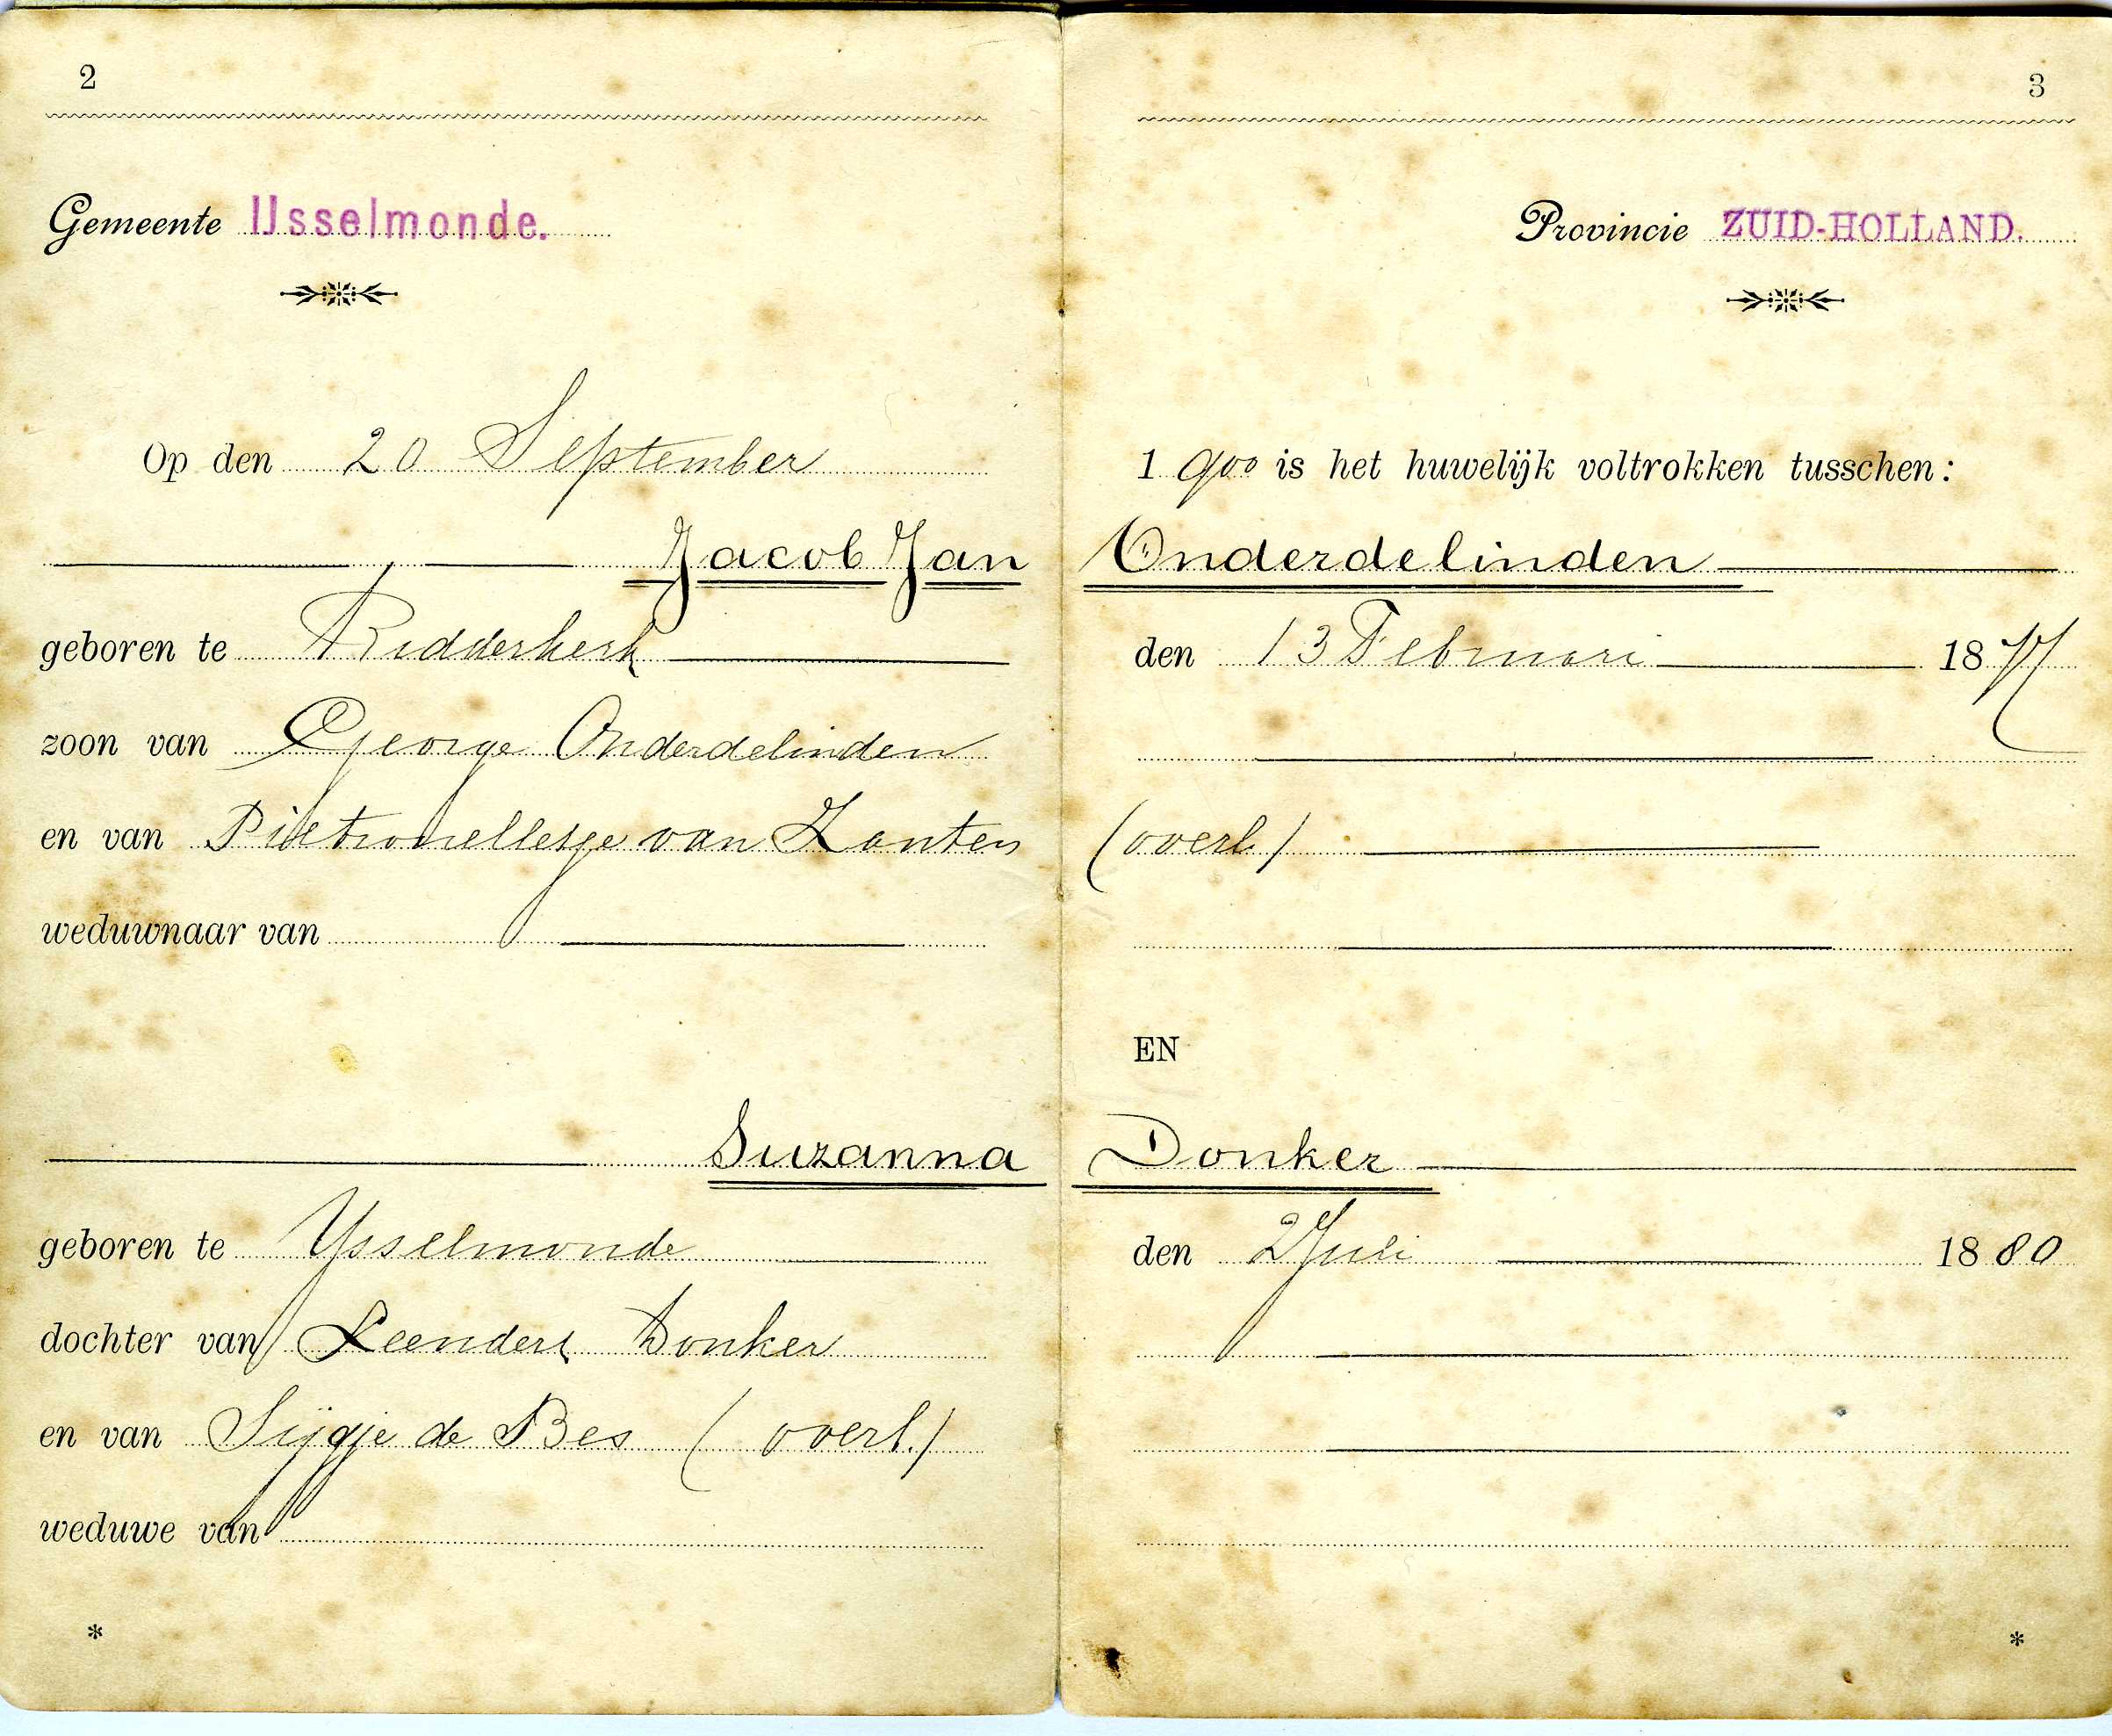 2
Gemeente IJsselmonde.
Op den 20 September
Jacob Jan
geboren te Ridderkerk
zoon van George Onderdelinden
en van Pietronelletje van Zanten
weduwnaar van
Suzanna
geboren te Ysselmonde
dochter van Leendert Donker
en van Sijgje de Bes (overl.)
weduwe van
*
3
Provincie ZUID-HOLLAND.
1900 is het huwelijk voltrokken tusschen:
Onderdelinden
den 13 Februari 1877
(overl.)
EN
Donker
den 2 Juli 1880
*